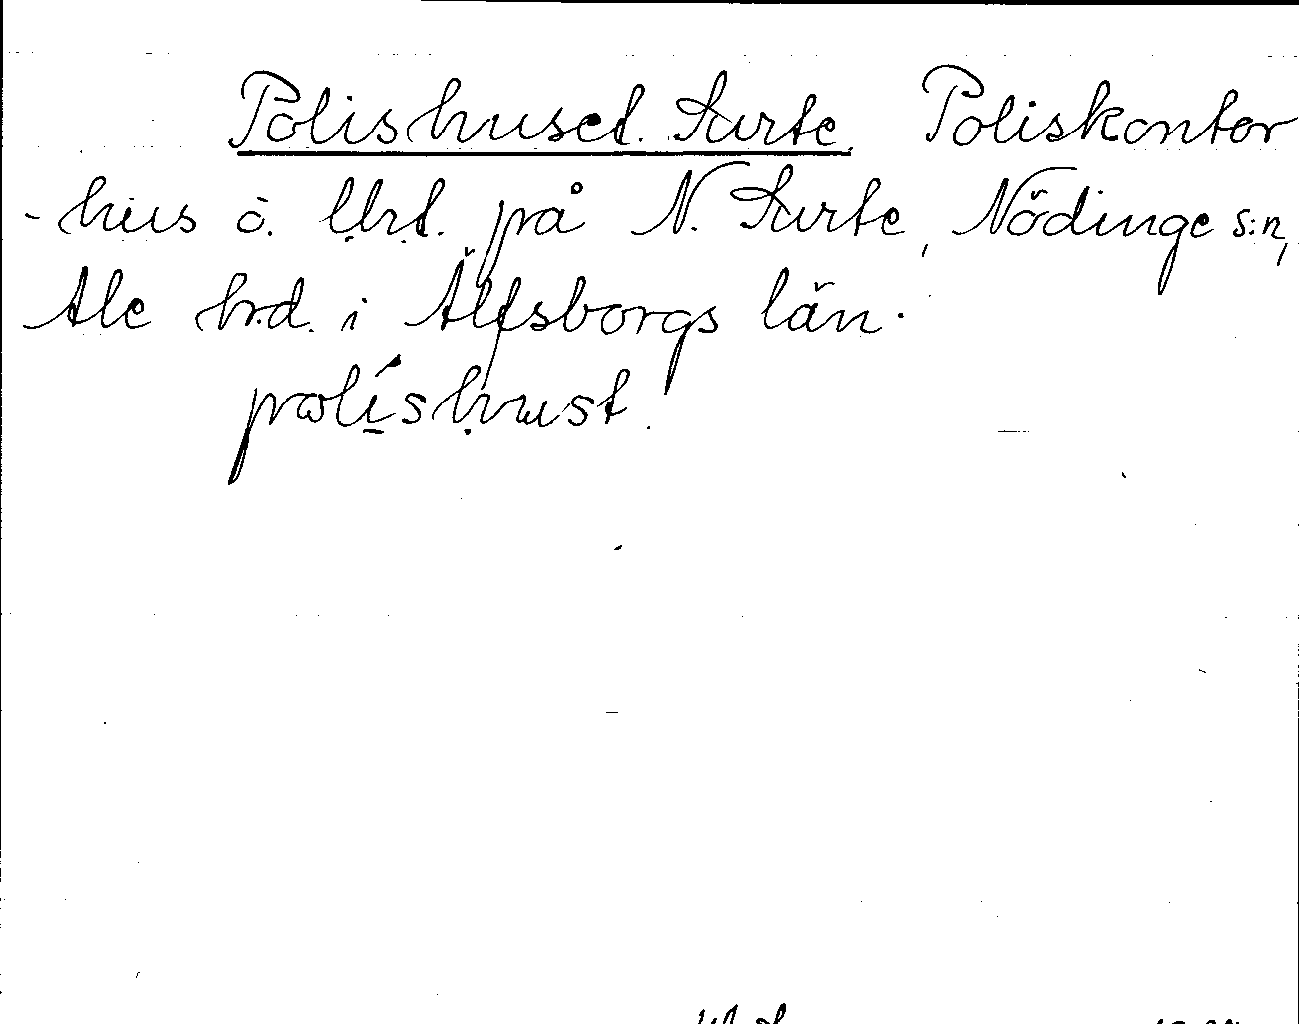 Polishuset. Surte. Poliskontor
-hus o. lht. på N. Surte, Nödinge s:n,
Ale hd. i Älfsborgs län.
polishust.